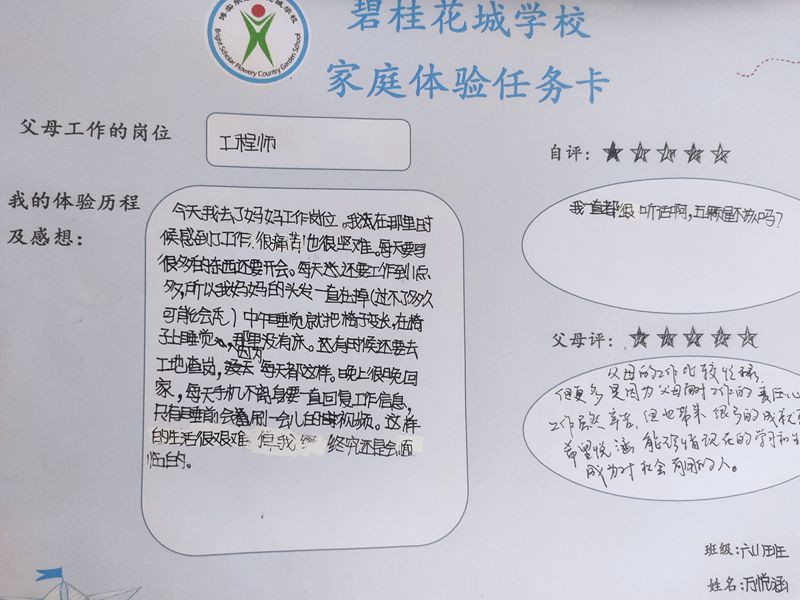 Bright Scholar Flowery Country Garden School
碧桂花城学校
家庭体验任务卡
父母工作的岗位
工程师
我的体验历程
及感想：
今天我去了妈妈工作岗位。我在那里时
候感到了工作很痛苦！也很坚难。每天要写
很多的东西还要开会。每天还要工作到1点
多，所以我妈妈的头发一直在掉（过不了多久
可能会秃）中午睡觉就把椅子变长，在椅
子上睡觉，因为那里没有床。还有时候还要去
工地查岗，每天都这样。晚上很晚回
家，每天手机不离身要一直回复工作信息，
只有睡前会刷一会儿的视频。这样
的生活很艰难 但我终 终究还是会面
临的。
自评：
我一直都很听话啊，五颗星不放心吗？
父母评：
父母的工作比较忙碌，
但更多是因为父母对工作的责任心
工作虽然辛苦，但也带来很多的成就
希望悦涵能珍惜现在的学习和生
成为对社会有用的人。
班级：六(1)班
姓名：万悦涵